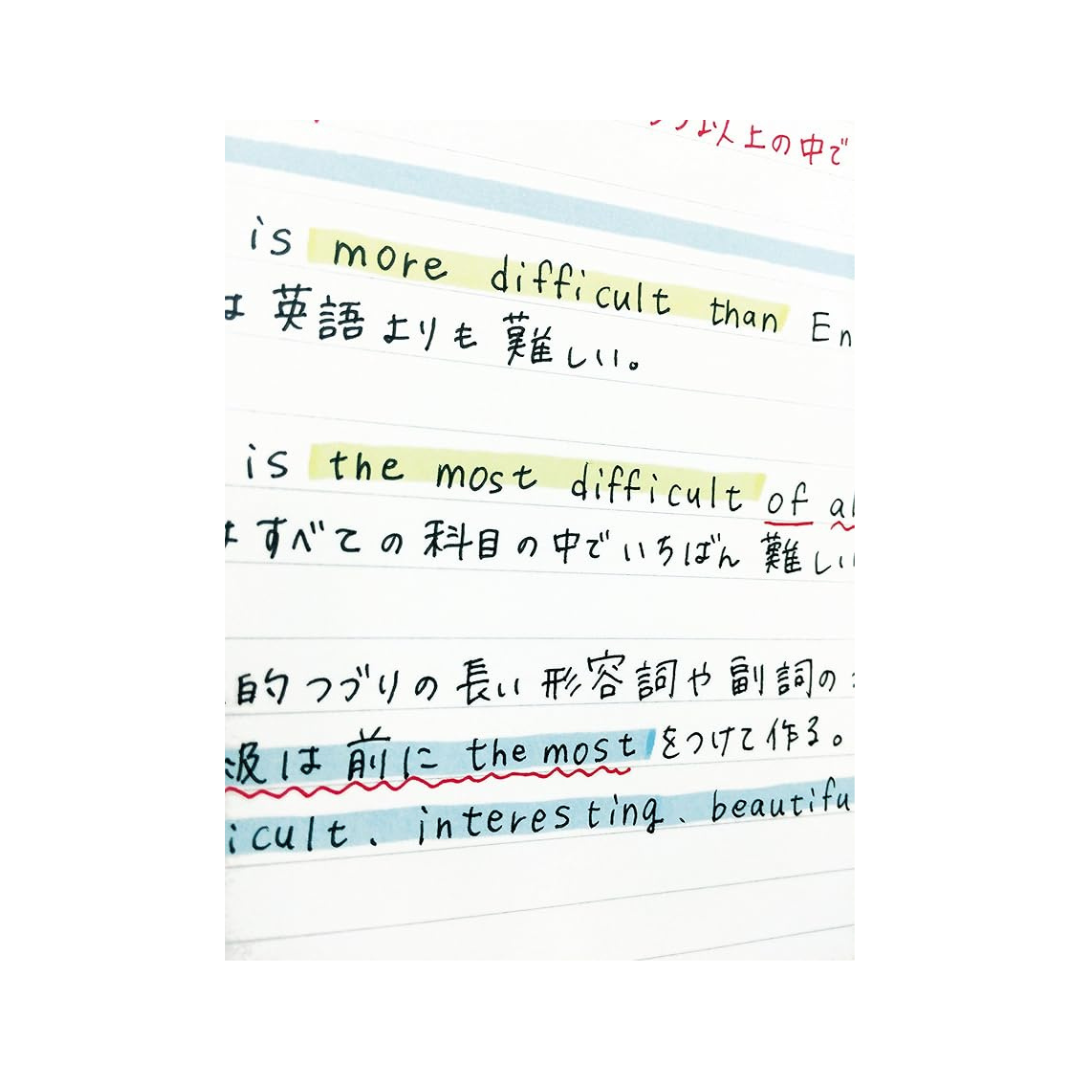 以上の中で
is more difficult than En
は 英語よりも 難しい。
is the most difficult of al
はすべての科目の中でいちばん 難しい
的つづりの長い形容詞や副詞の
級は前に the most をつけて作る。
icult、interesting、beautifu